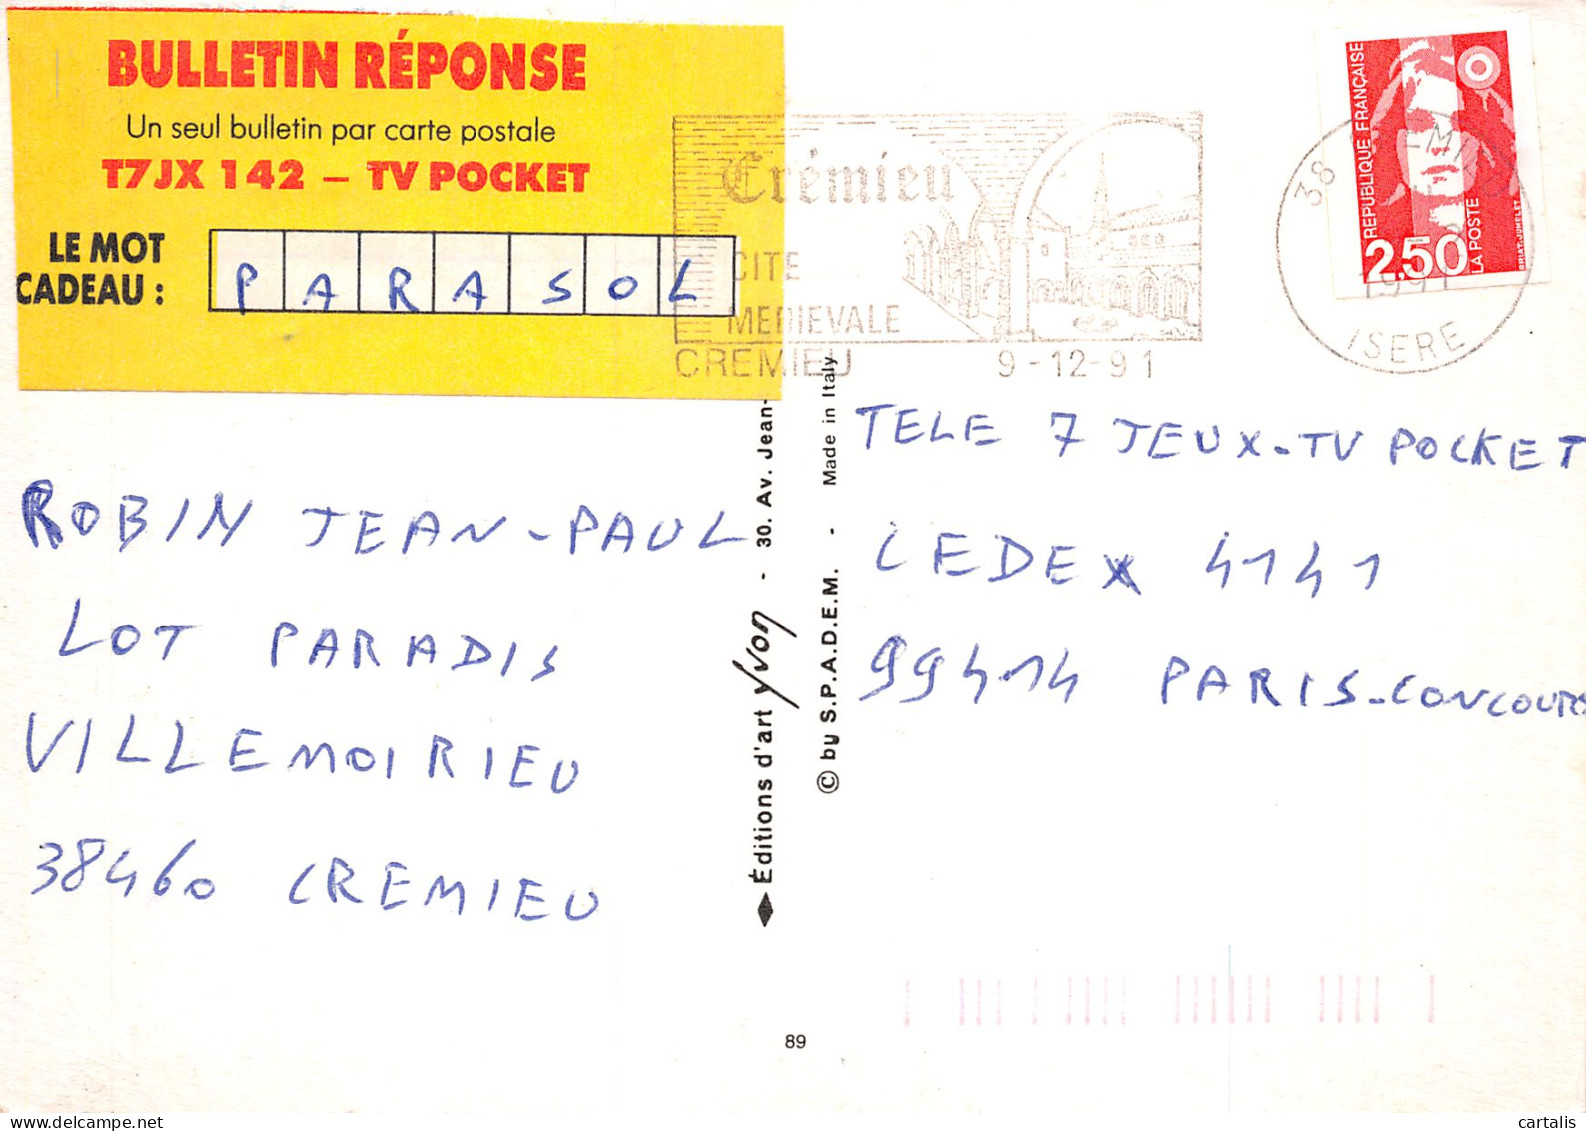 BULLETIN RÉPONSE
Un seul bulletin par carte postale
T7JX 142 – TV POCKET
LE MOT
CADEAU :
PARASOL
Crémieu
CITE
MEDIEVALE
CREMIEU 9-12-91
38
1991
ISERE
REPUBLIQUE FRANÇAISE
2,50
LA POSTE
BRIAT-JUMELET
ROBIN JEAN-PAUL
LOT PARADIS
VILLEMOIRIEU
38460 CREMIEU
Éditions d'art Yvon - 30. Av. Jean-
© by S.P.A.D.E.M. - Made in Italy
TELE 7 JEUX-TV POCKET
CEDEX 4141
99414 PARIS-CONCOURS
89
cartalis